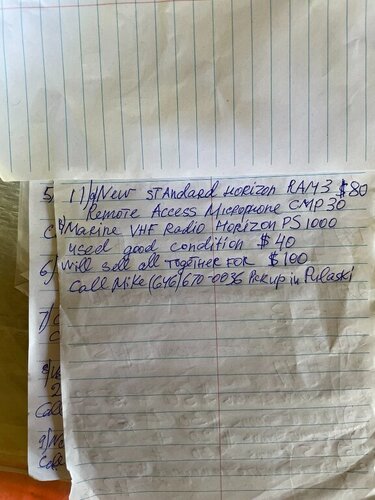 5 11) a) New Standard Horizon RAM3 $80
Remote Access Microphone CMP30
b) Marine VHF Radio Horizon PS1000
used good condition $40
6) will sell all together for $100
Call Mike (646) 670-0036 Pickup in Pulaski
7)
8)
2
Call
9) No
Call